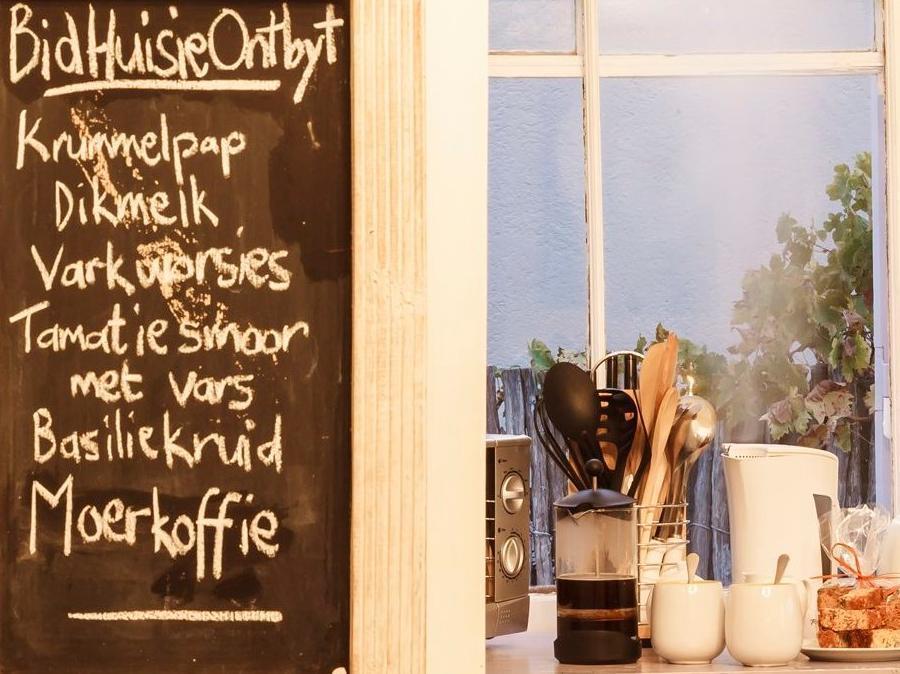 BidHuisieOntbyt
Krummelpap
Dikmelk
Varkworsies
Tamatiesmoor
met vars
Basiliekruid
Moerkoffie